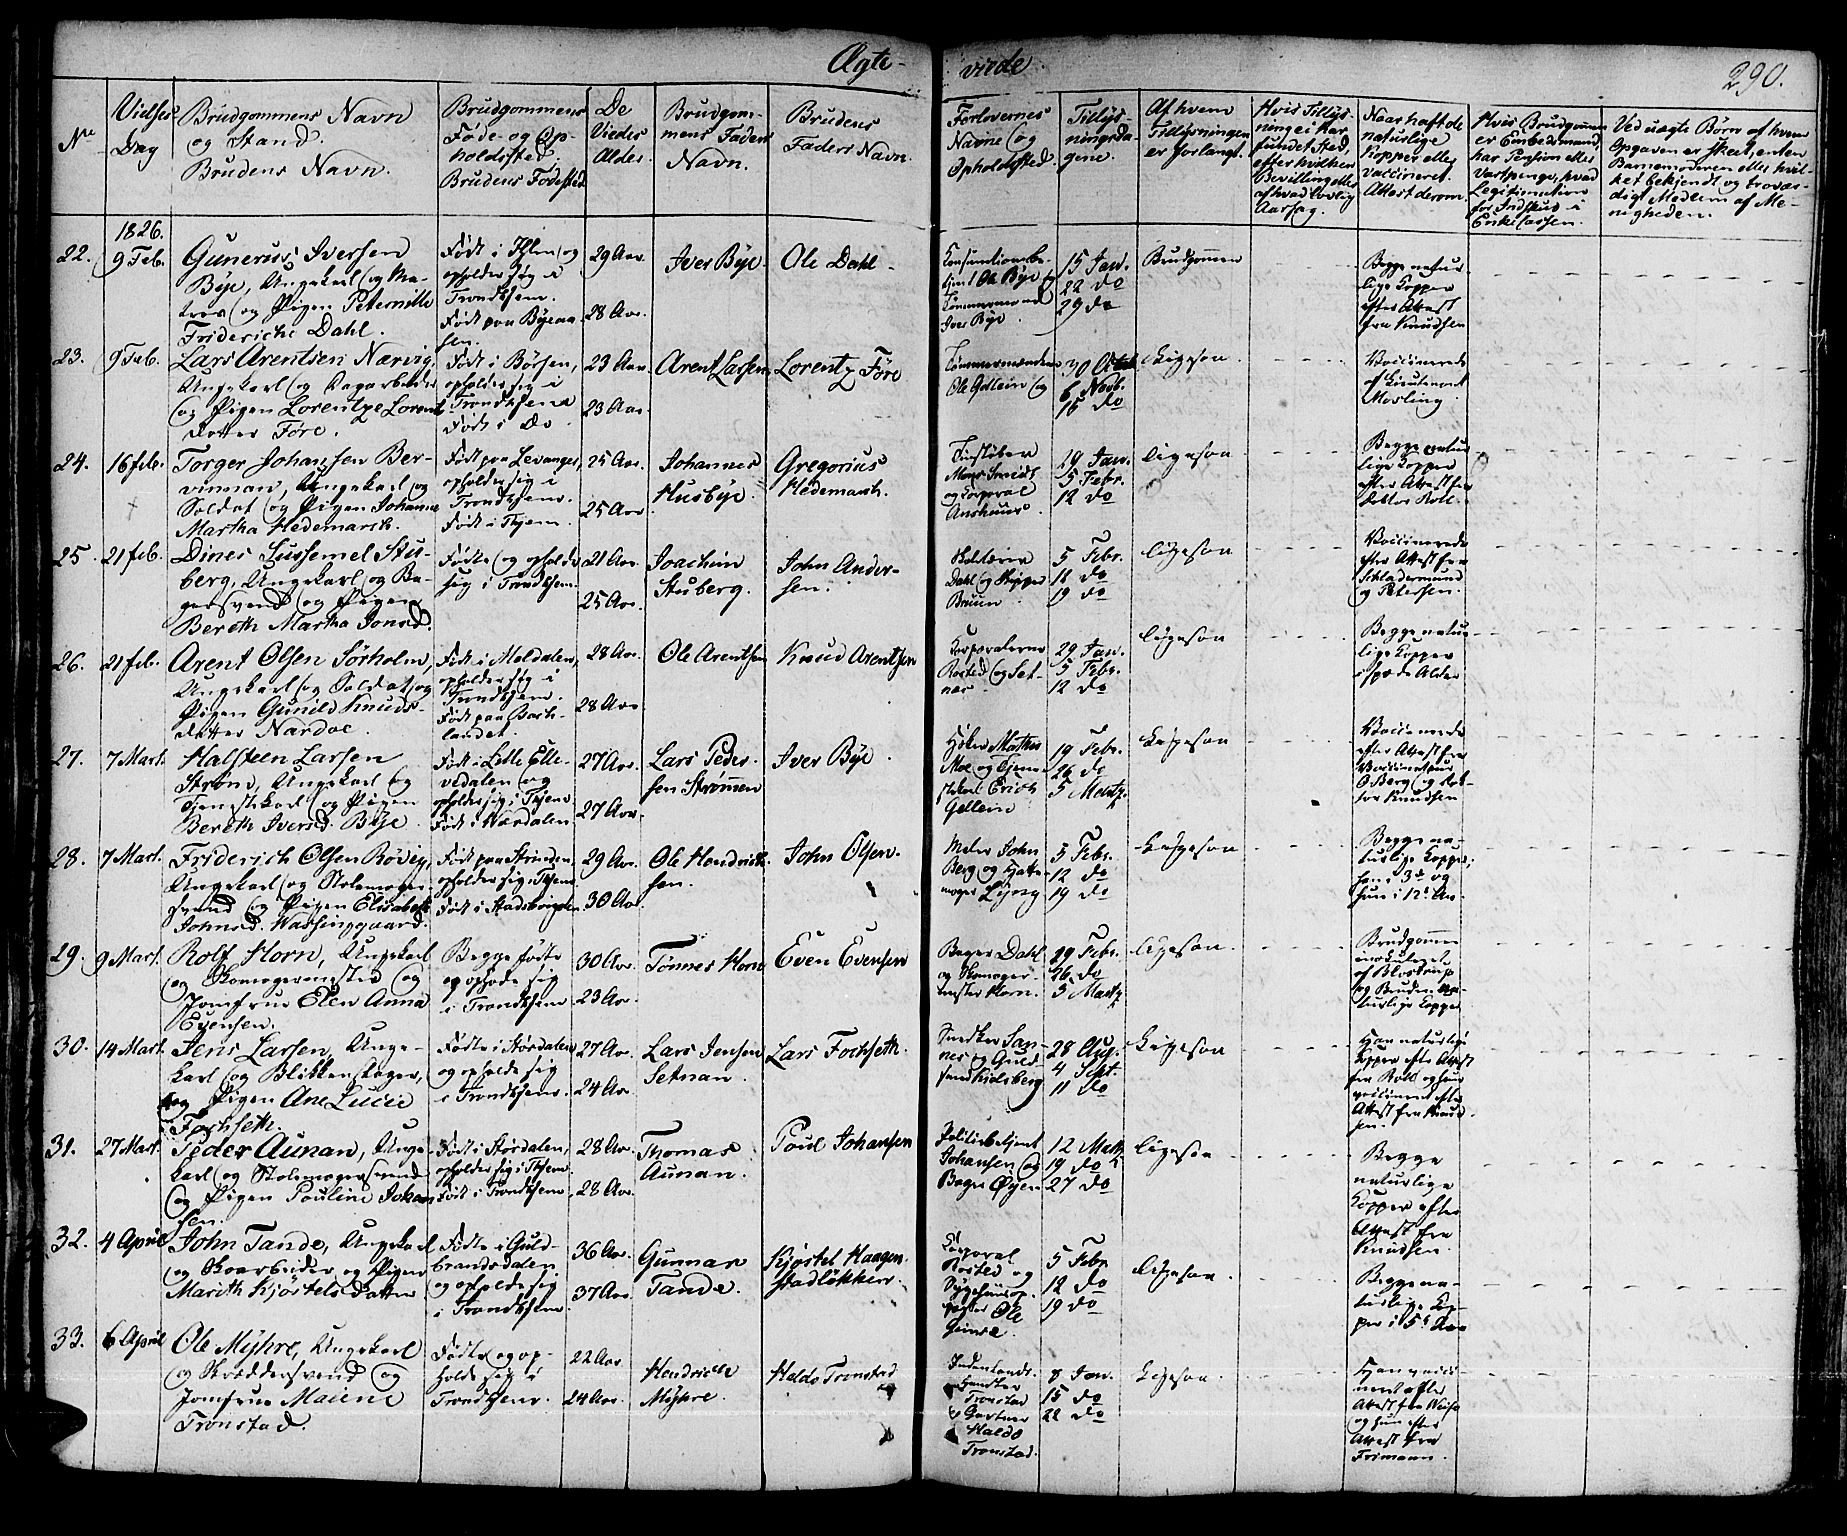 Ægte-
viede.
290.
No
Vielses
Dag
Brudgommens Navn
og Stand.
Brudens Navn.
Brudgommens
Føde- og Op-
holdssted.
Brudens Fødested
De
Viedes
Alder.
Brudgom-
mens Faders
Navn.
Brudens
Faders Navn.
Forlovernes
Navne og
Opholdssted.
Tillys-
ningsda-
gene.
Af hvem
Tillysningen
er forlangt.
Hvis Tillys-
ning ei har
fundet Sted,
efter hvilken
Bevilling eller
af hvad lovlig
Aarsag.
Naar haft de
naturlige
Kopper eller
vaccineret.
Attest derom.
Hvis Brudgommen
er Embedsmand,
har Pension eller
Vartpenge, hvad
Legitimation
for Indskud i
Enkecassen.
Ved uægte Børn af hvem
Opgaven er skeet, enten
Barnemoderen eller hvil-
ket bekjendt og trovær-
digt Medlem af Me-
nigheden.
1826.
22.
9 Feb.
Gunerius Iversen
Bye, Ungekarl og Ma-
tros og Pigen Peternille
Frideriche Dahl.
Født i Ihlen og
opholder sig i
Trondhjem.
Født paa Byeaa-
sen.
29 Aar.
28 Aar.
Iver Bye.
Ole Dahl.
Consumtionsbe-
tjent Ole Bye og
Tømmermand
Iver Bye.
15 Jan.
22 do
29 do
Brudgommen
Begge natur-
lige Kopper
efter Attest
fra Knudsen
23.
9 Feb.
Lars Arentsen Nærvig
Ungekarl og Dagarbeider
og Pigen Lorentze Lorentz
datter Føre.
Født i Børsen,
opholder sig i
Trondhjem
Født i Do
23 Aar.
23 Aar.
Arent Larsen
Lorentz Føre
Tømmermændene
Ole Gellein og
30 Octob
6 Novb.
15 do
Ligeson.
Vaccinerede
af Lieutenant
Mosling.
24.
16 feb.
Torger Johansen Ber-
vinman, Ungekarl og
Soldat og Pigen Johanna
Martha Hedemarck.
Født paa Levanger,
opholder sig i
Trondhjem.
Født i Thjem.
25 Aar.
25 Aar
Johannes
Husbye.
Gregorius
Hedemarck.
og Corporal
19 Jan.
5 Febr.
12 do
Ligeson.
Begge natur
lige Kopper
efter Attest fra
25
21 feb.
Dines Sussemel Stu-
berg, Ungekarl og Ba-
gersvend og Pigen
Bereth Martha Jonsd.
Fødte og opholde
sig i Trondhjem
21 Aar.
25 Aar.
Joachim
Stuberg.
John Ander-
sen.
Dahl og Skipper
Bruun
5 Febr.
12 do
19 do
Ligeson
Vaccinerede
efter Attest fra
Schladermund
og Petersen.
26.
21 feb.
Arent Olsen Sørholm,
Ungekarl og Soldat og
Pigen Gunild Knuds-
datter Nardoe.
Født i Meldalen,
opholder sig i
Trondhjem.
Født paa Bach-
landet.
28 Aar
28 Aar
Ole Arentsen
Knud Arentsen
Corporalerne
Rosted og Set-
nes.
29 Jan.
5 Febr.
12 do
Ligeson
Begge natur
lige Kopper
i spæde Alder
27.
7 Mart.
Halsteen Larsen
Strøm, Ungekarl og
Tjenestekarl og Pigen
Bereth Iversd. Bye.
Født i Lille Elle-
vedalen og
opholder sig i Thjem
Født i Værdalen
27 Aar.
27 Aar.
Lars Peder-
sen Strømmen
Iver Bye.
Høker Mathis
Moe og Tjene-
stekarl Erich
Gellein
19 Febr.
26 do
5 Martz.
Ligeson
Vaccinerede
efter Attest fra
28.
7 Mart.
Friderich Olsen Røvig,
Ungekarl og Stolemager-
svend og Pigen Elisabeth
Johnsd. Wassinggaard.
Født paa Strinden
opholder sig i Thjem
Født i Stadsbøigden
29 Aar.
30 Aar.
Ole Hendrich-
sen.
John Olsen.
Maler John
Berg og Hatte-
mager Lysng
5 Febr.
12 do
19 do
Ligeson
Begge na-
turlige Kopper,
han i 3de og
hun i 12te Aar
29.
9 Mart.
Rolf Horn, Ungekarl
og Skomagermester og
Jomfrue Elen Anna
Evensen.
Begge fødte
og opholde sig
i Trondhjem
30 Aar.
23 Aar.
Tønnes Horn
Even Evensen
Bager Dahl
og Skomager-
mester Horn.
19 Febr.
26 do
5 Martz
Ligeson.
Brudgommen
inoculeret
af Blostrup
og Bruden na-
turlige Kopper
30.
14 Mart.
Jens Larsen, Unge-
karl og Blikkenslager,
og Pigen Ane Lucie
Fochseth.
Fødte i Størdalen
og opholde sig
i Trondhjem.
27 Aar.
24 Aar.
Lars Jensen
Setnan.
Lars Fochseth.
Snedker San-
nes og Guld-
smed Kielsberg
28 Aug.
4 Sept.
11 do
Ligeson
Han naturlige
Kopper efter Attest
fra Roll og hun
vaccineret efter
Attest fra Knud-
sen.
31.
27 Mart.
Peder Aunan, Unge-
karl og Stolemagersvend
og Pigen Pouline Johan
sen.
Født i Størdalen,
opholder sig i Thjem
Født i Trondhjem
28 Aar.
28 Aar.
Thomas
Aunan.
Poul Johansen
Politiebetjent
Johansen og
Bager Øyen
12 Mart
19 do
27 do
Ligeson
Begge
naturlige
Kopper efter
Attest fra
Knudsen.
32.
4 April
John Tande, Ungekarl
og Skoarbeider og Pigen
Marith Kjøstels datter
Fødte i Guld-
brandsdalen
og opholde sig
i Trondhjem
36 Aar.
37 Aar
Gunnar
Tande.
Kjøstel Haagen-
stadløkken.
Corporal
Rosted og
Sygehuusop-
passer Ole
5 Febr
12 do
19 do
Ligeson.
Begge na-
turlige Kop-
per i 5te Aar
33.
6 April
Ole Myhre, Ungekarl
og Skræddersvend og
Jomfrue Malene
Tronstad.
Fødte og op-
holde sig i
Trondhjem.
22 Aar
24 Aar.
Hendrich
Myhre.
Haldo Tronstad
Tronstad
og Gartner
Haldo
Tronstad.
8 Jan.
15 do
22 do
Ligeson.
Han vacci
neret efter
og hun efter
Attest fra
Frimann.